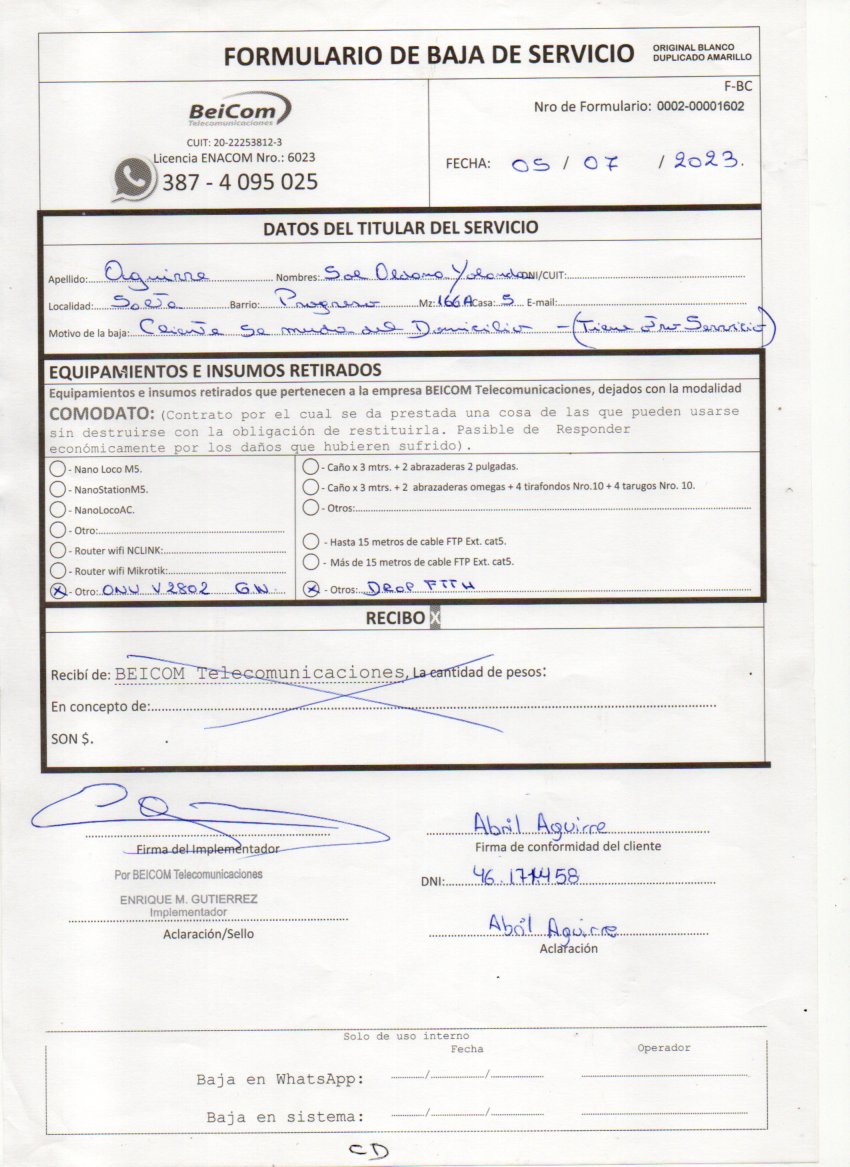 FORMULARIO DE BAJA DE SERVICIO ORIGINAL BLANCO
DUPLICADO AMARILLO
F-BC
BeiCom
Telecomunicaciones
Nro de Formulario: 0002-00001602
CUIT: 20-22253812-3
Licencia ENACOM Nro.: 6023
387 - 4 095 025
FECHA: 05 / 07 / 2023.
DATOS DEL TITULAR DEL SERVICIO
Apellido: Aguirre Nombres: Sol Oldana Yolanda DNI/CUIT:
Localidad: Salta Barrio: Progreso Mz: 166A Casa: 5 E-mail:
Motivo de la baja: Cliente se mudo del Domicilio - (Tiene otro Servicio)
EQUIPAMIENTOS E INSUMOS RETIRADOS
Equipamientos e insumos retirados que pertenecen a la empresa BEICOM Telecomunicaciones, dejados con la modalidad
COMODATO: (Contrato por el cual se da prestada una cosa de las que pueden usarse
sin destruirse con la obligación de restituirla. Pasible de Responder
económicamente por los daños que hubieren sufrido).
- Nano Loco M5.
- NanoStationM5.
- NanoLocoAC.
- Otro:
- Router wifi NCLINK:
- Router wifi Mikrotik:
X - Otro: ONU V2802 GW.
- Caño x 3 mtrs. + 2 abrazaderas 2 pulgadas.
- Caño x 3 mtrs. + 2 abrazaderas omegas + 4 tirafondos Nro.10 + 4 tarugos Nro. 10.
- Otros:
- Hasta 15 metros de cable FTP Ext. cat5.
- Más de 15 metros de cable FTP Ext. cat5.
X - Otros: DROP FTTH
RECIBO X
Recibí de: BEICOM Telecomunicaciones, La cantidad de pesos:
En concepto de:
SON $.
Firma del Implementador
Por BEICOM Telecomunicaciones
ENRIQUE M. GUTIERREZ
Implementador
Aclaración/Sello
Abril Aguirre
Firma de conformidad del cliente
DNI: 46.171458
Abril Aguirre
Aclaración
Solo de uso interno
Fecha Operador
Baja en WhatsApp: / /
Baja en sistema: / /
CD